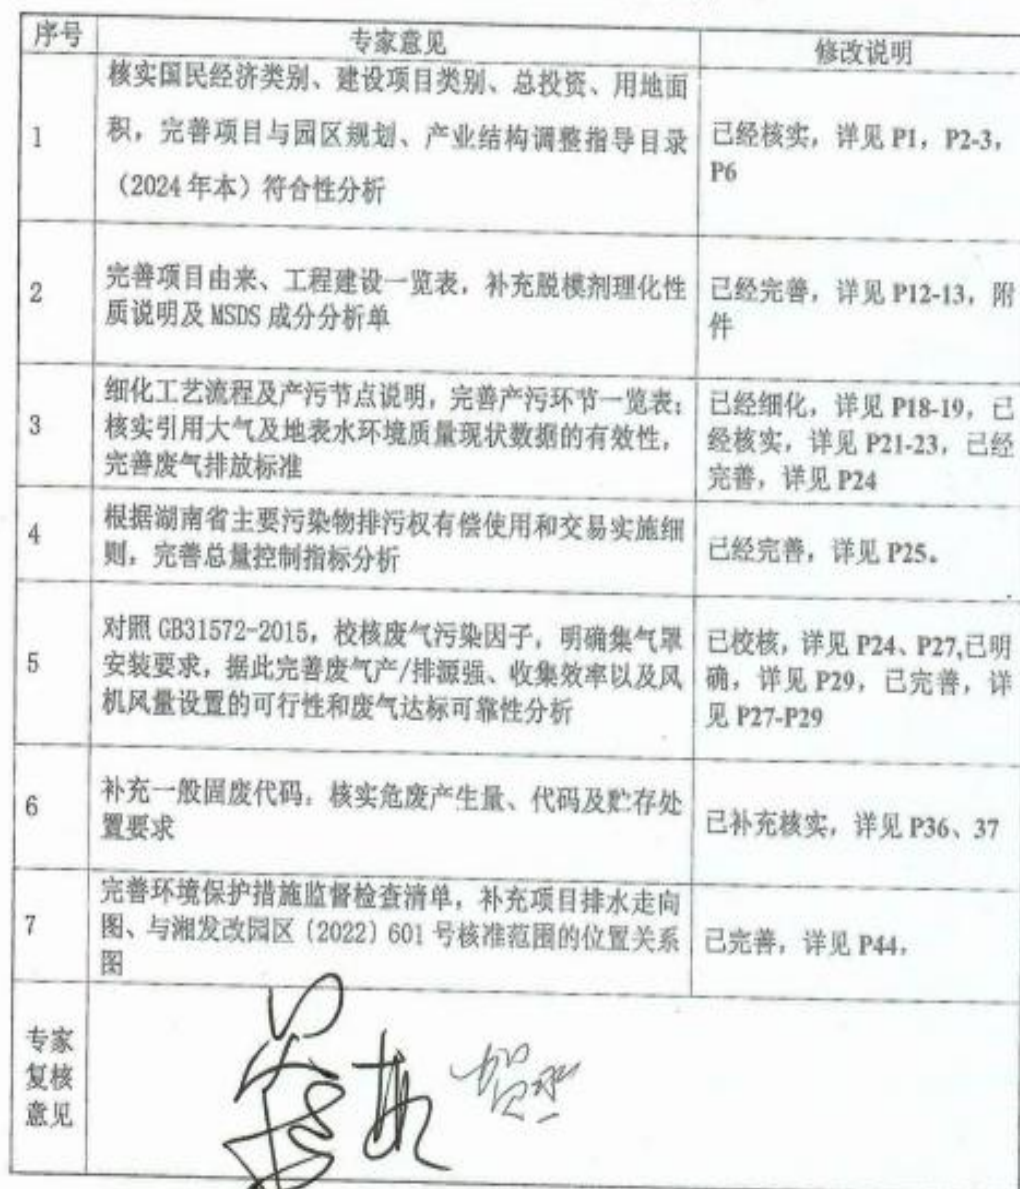 序号 专家意见 修改说明
1
核实国民经济类别、建设项目类别、总投资、用地面
积，完善项目与园区规划、产业结构调整指导目录
（2024年本）符合性分析
已经核实，详见 P1，P2-3，
P6
2
完善项目由来、工程建设一览表，补充脱模剂理化性
质说明及 MSDS 成分分析单
已经完善，详见 P12-13，附
件
3
细化工艺流程及产污节点说明，完善产污环节一览表；
核实引用大气及地表水环境质量现状数据的有效性，
完善废气排放标准
已经细化，详见 P18-19，已
经核实，详见 P21-23，已经
完善，详见 P24
4
根据湖南省主要污染物排污权有偿使用和交易实施细
则，完善总量控制指标分析
已经完善，详见 P25。
5
对照 GB31572-2015，校核废气污染因子，明确集气罩
安装要求，据此完善废气产/排源强、收集效率以及风
机风量设置的可行性和废气达标可靠性分析
已校核，详见 P24、P27,已明
确，详见 P29，已完善，详
见 P27-P29
6
补充一般固废代码；核实危废产生量、代码及贮存处
置要求
已补充核实，详见 P36、37
7
完善环境保护措施监督检查清单，补充项目排水走向
图、与湘发改园区〔2022〕601 号核准范围的位置关系
图
已完善，详见 P44，
专家
复核
意见